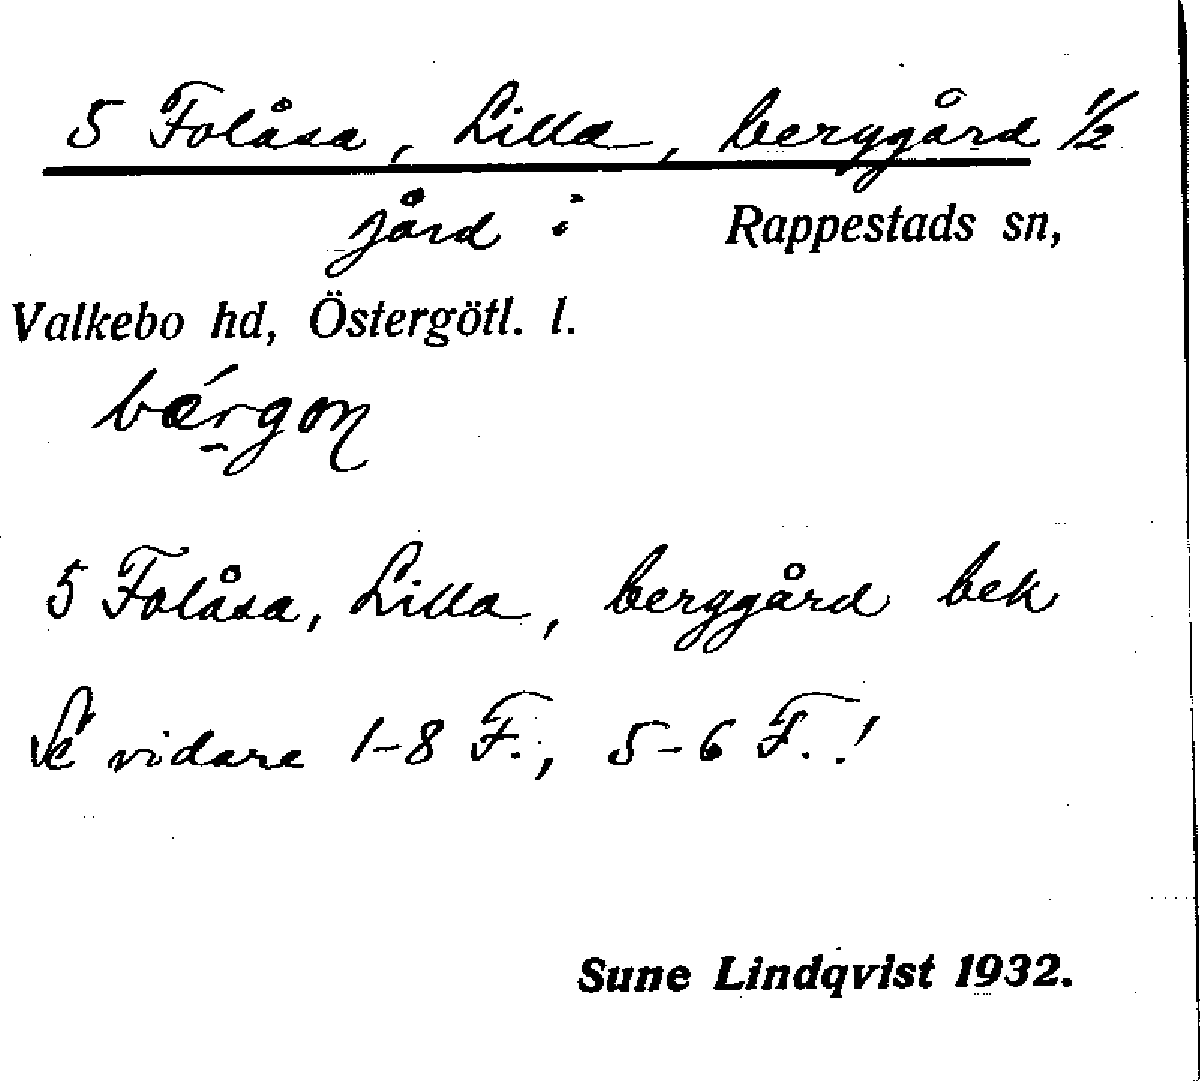 5 Folåsa, Lilla, berggård 1/2
jård i Rappestads sn,
Valkebo hd, Östergötl. l.
bǽrgon
5 Folåsa, Lilla, berggård bek
Se vidare 1-8 F., 5-6 F.!
Sune Lindqvist 1932.